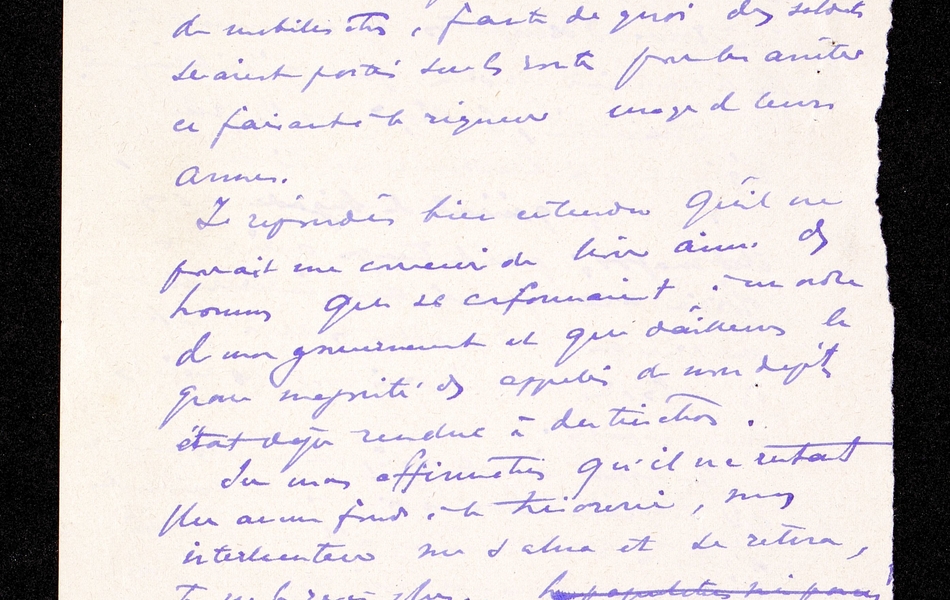 de mobilisation, faute de quoi des soldats
seraient postés sur la route pour les arrêter
en faisant à la rigueur usage de leurs
armes.
Je répondis bien entendu qu'il ne
pouvait me convenir de livrer ainsi des
hommes qui se conformaient à un ordre
de mon gouvernement et que d'ailleurs la
grosse majorité des appelés de mon dépôt
était déjà rendue à destination.
Sur mon affirmation qu'il ne restait
plus aucun fonds à la trésorerie, mon
interlocuteur me salua et se retira,